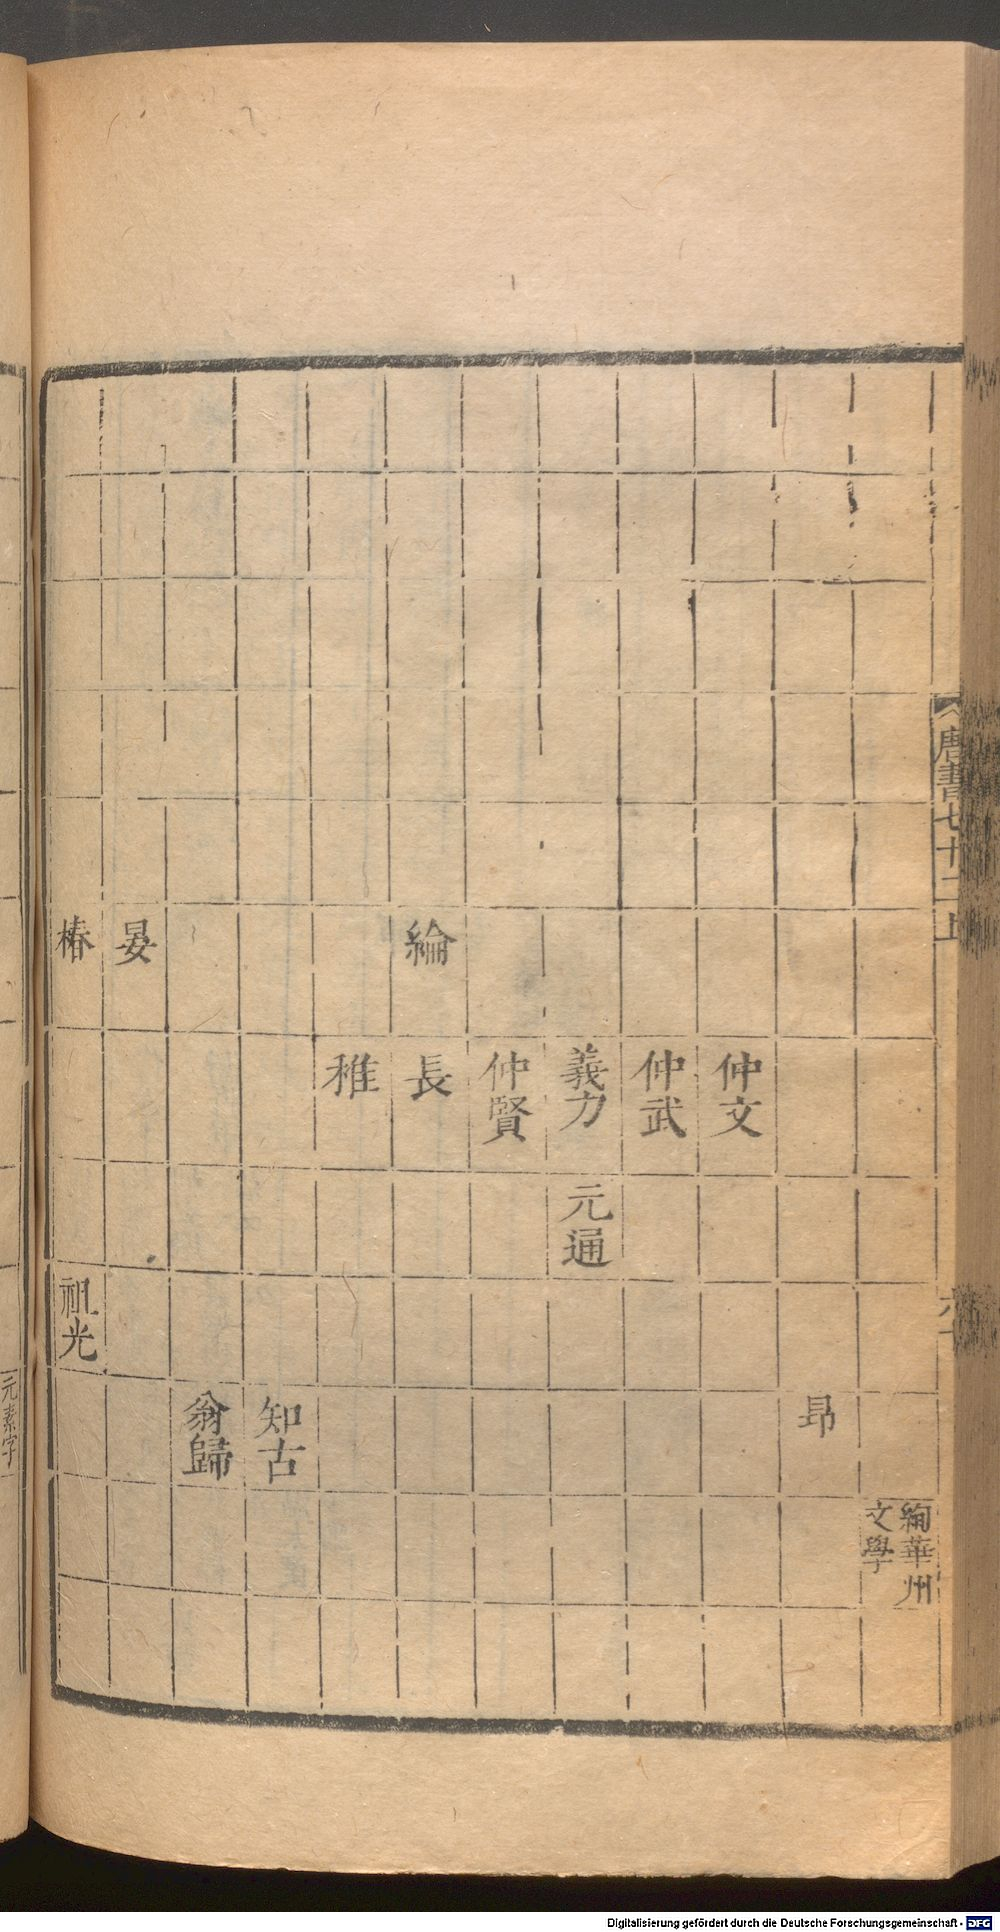 唐書七十二上
絢華州
文學
昂
仲文
仲武
義力
元通
仲賢
綸
長
稚
知古
翁歸
晏
椿
祖光
元素字
Digitalisierung gefördert durch die Deutsche Forschungsgemeinschaft - DFG